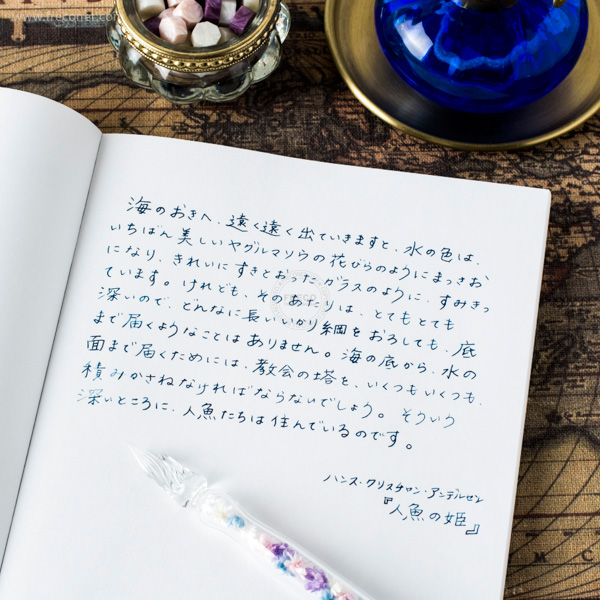 海のおきへ、遠く遠く出ていきますと、水の色は、
いちばん美しいヤグルマソウの花びらのようにまっさお
になり、きれいにすきとおったガラスのように、すみきっ
ています。けれども、そのあたりは、とてもとても
深いので、どんなに長いいかり綱をおろしても、底
まで届くようなことはありません。海の底から、水の
面まで届くためには、教会の塔を、いくつもいくつも、
積みかさねなければならないでしょう。そういう
深いところに、人魚たちは住んでいるのです。
ハンス・クリスチャン・アンデルセン
『人魚の姫』